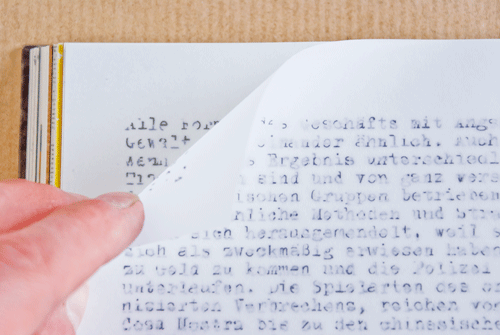 Alle For des Geschäfts mit Ange
Gewalt einander ähnlich. Auch
denn s Ergebnis unterschiedl
sind und von ganz vers
ischen Gruppen betrieben
nliche Methoden und Stra
sich herausgemendelt, weil s
sich als zweckmäßig erwiesen haben
zu Geld zu kommen und die Polizei
unterlaufen. Die Spielarten des or
nisierten Verbrechens, reichen vo
Cosa Nostra bis zu den chinesische